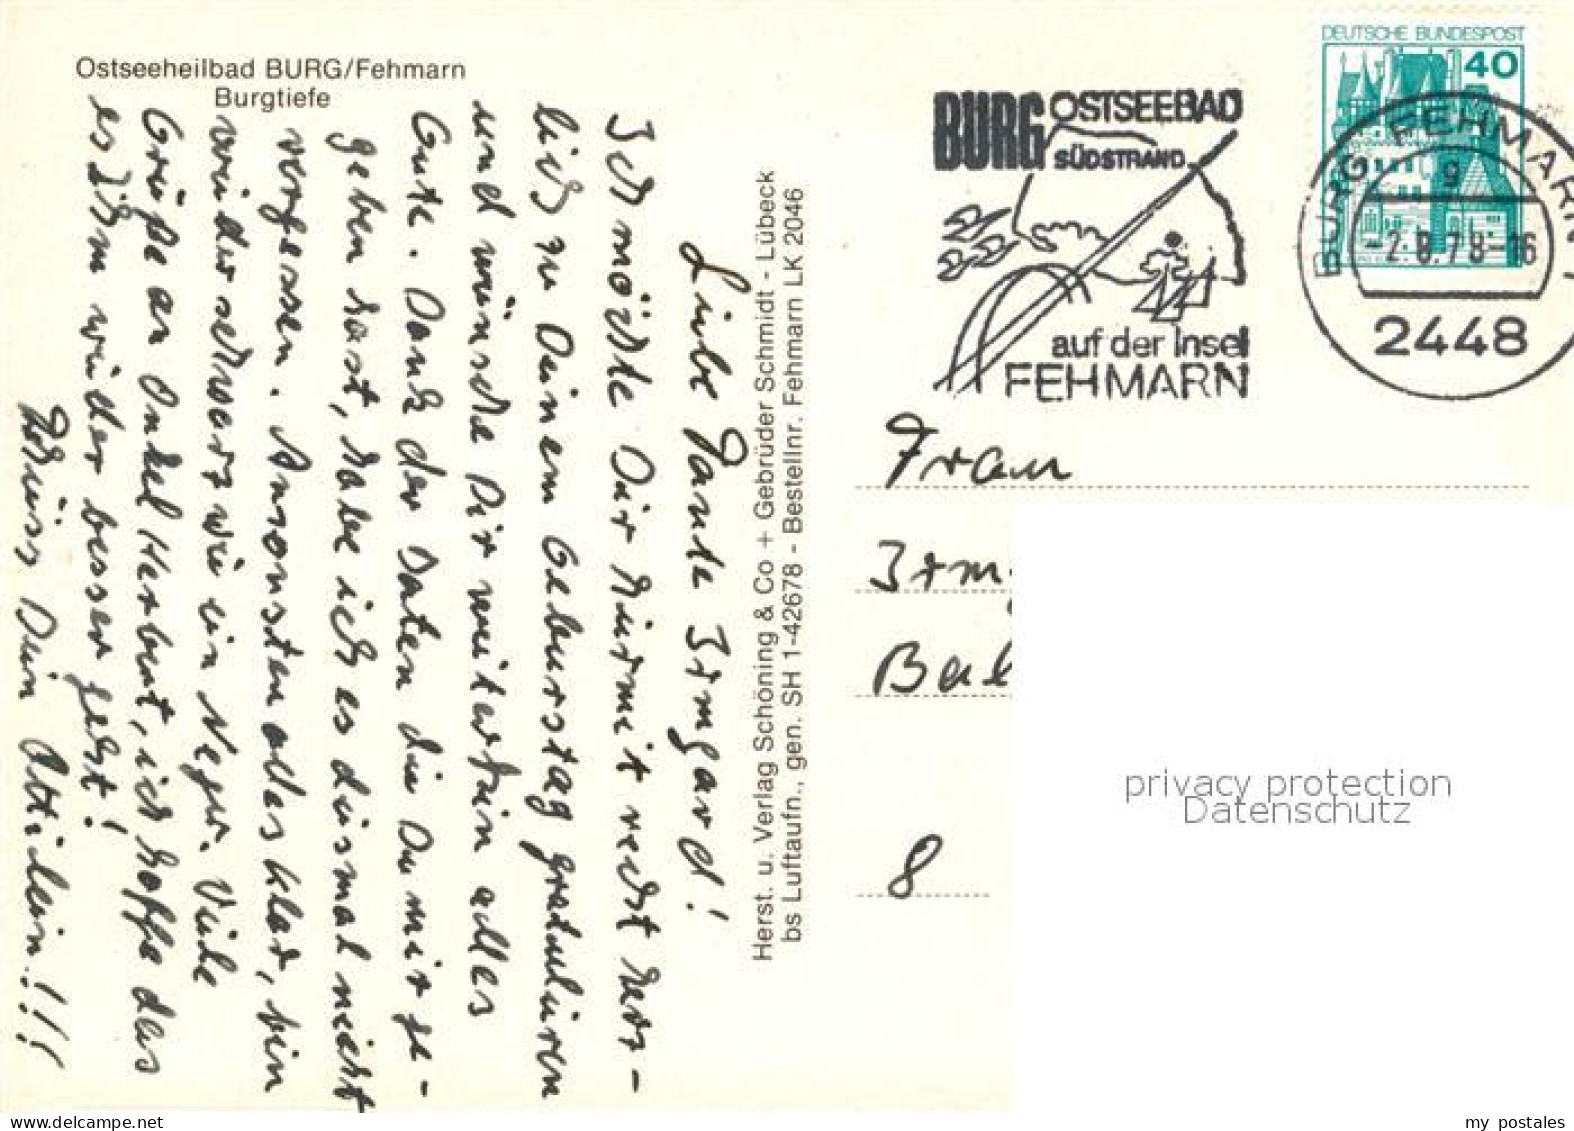 Ostseeheilbad BURG/Fehmarn
Burgtiefe
Liebe Tante Irmgard!
Ich möchte Dir hiermit recht herz-
lich zu Deinem Geburstag gratulieren
und wünsche Dir weiterhin alles
Gute. Dank der Daten die Du mir ge-
geben hast, habe ich es diesmal nicht
vergessen. Ansonsten alles klar, bin
wieder schwarz wie ein Neger. Viele
Grüße an Onkel Herbert, ich hoffe das
es ihm wieder besser geht!
Tschüss Dein
Herst. u. Verlag Schöning & Co + Gebrüder Schmidt - Lübeck
bs Luftaufn., gen. SH 1-42678 - Bestellnr. Fehmarn LK 2046
BURG OSTSEEBAD
SÜDSTRAND
auf der Insel
FEHMARN
DEUTSCHE BUNDESPOST
40
BURG FEHMARN 1
g
-2.8.78-16
2448
Frau
Irm
8
privacy protection
Datenschutz
my postales